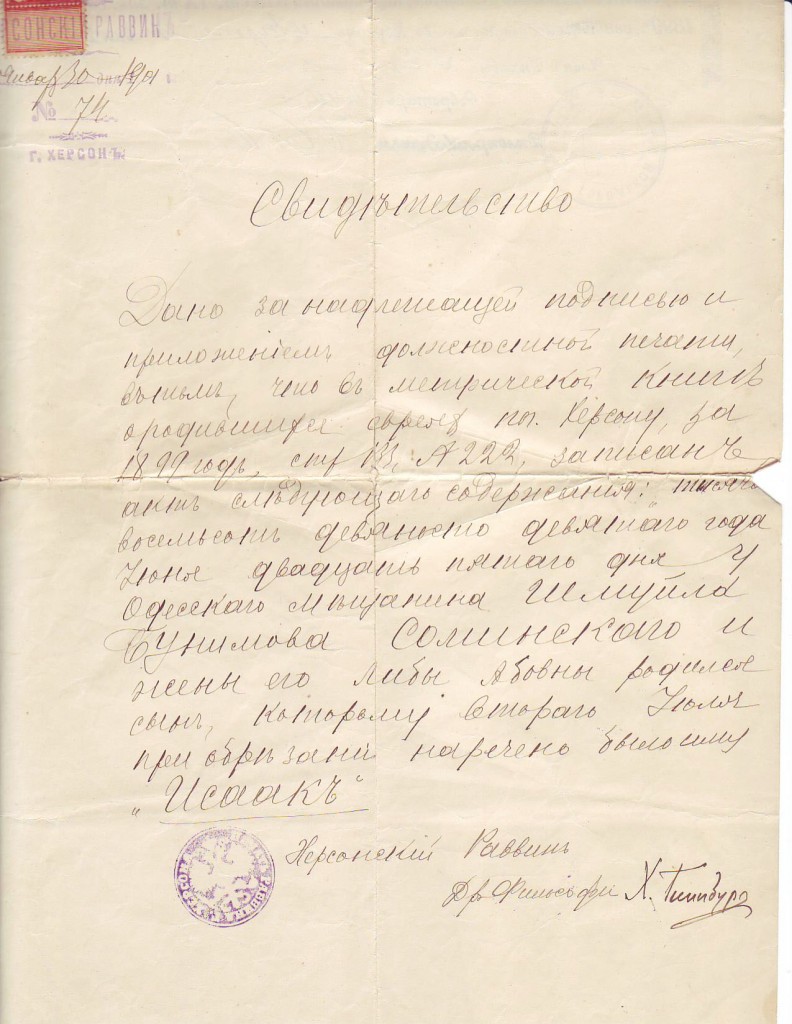 СОНСКІ РАВВИН
Январ 30 дня 1901
№ 74
Г. ХЕРСОНЪ.
Свидѣтельство
Дано за надлежащей подписью и
приложеніемъ должностной печати,
въ томъ, что въ метрической книгѣ
о родившихся евреях по г. Херсону, за
1899 годъ, стр 133, № 222, записанъ
актъ слѣдующаго содержанія: "тысяча
восемьсотъ девяносто девятаго года
Іюня двадцать пятаго дня у
Одесскаго мѣщанина Шмуйла
Бунимова Соминскаго и
жены его Либы Абовны родился
сынъ, которому втораго Іюля
при обрѣзаніи наречено было имя
„Исаакъ"
Херсонскій Раввинъ
Др Философіи Х. Гинзбург